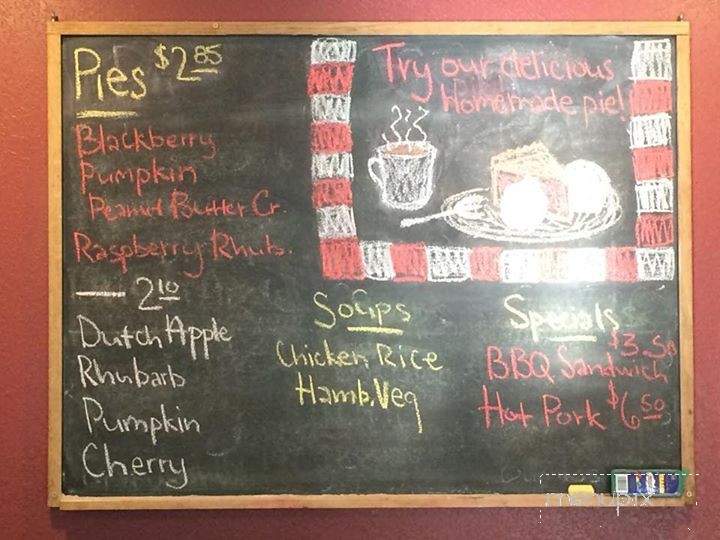 Pies $2.85
Blackberry
Pumpkin
Peanut Butter Cr.
Raspberry Rhub.
— 2.10
Dutch Apple
Rhubarb
Pumpkin
Cherry
Try our delicious
Homemade pie!
Soups
Chicken Rice
Hamb. Veg
Specials
BBQ Sandwich $3.50
Hot Pork $6.50
menupix